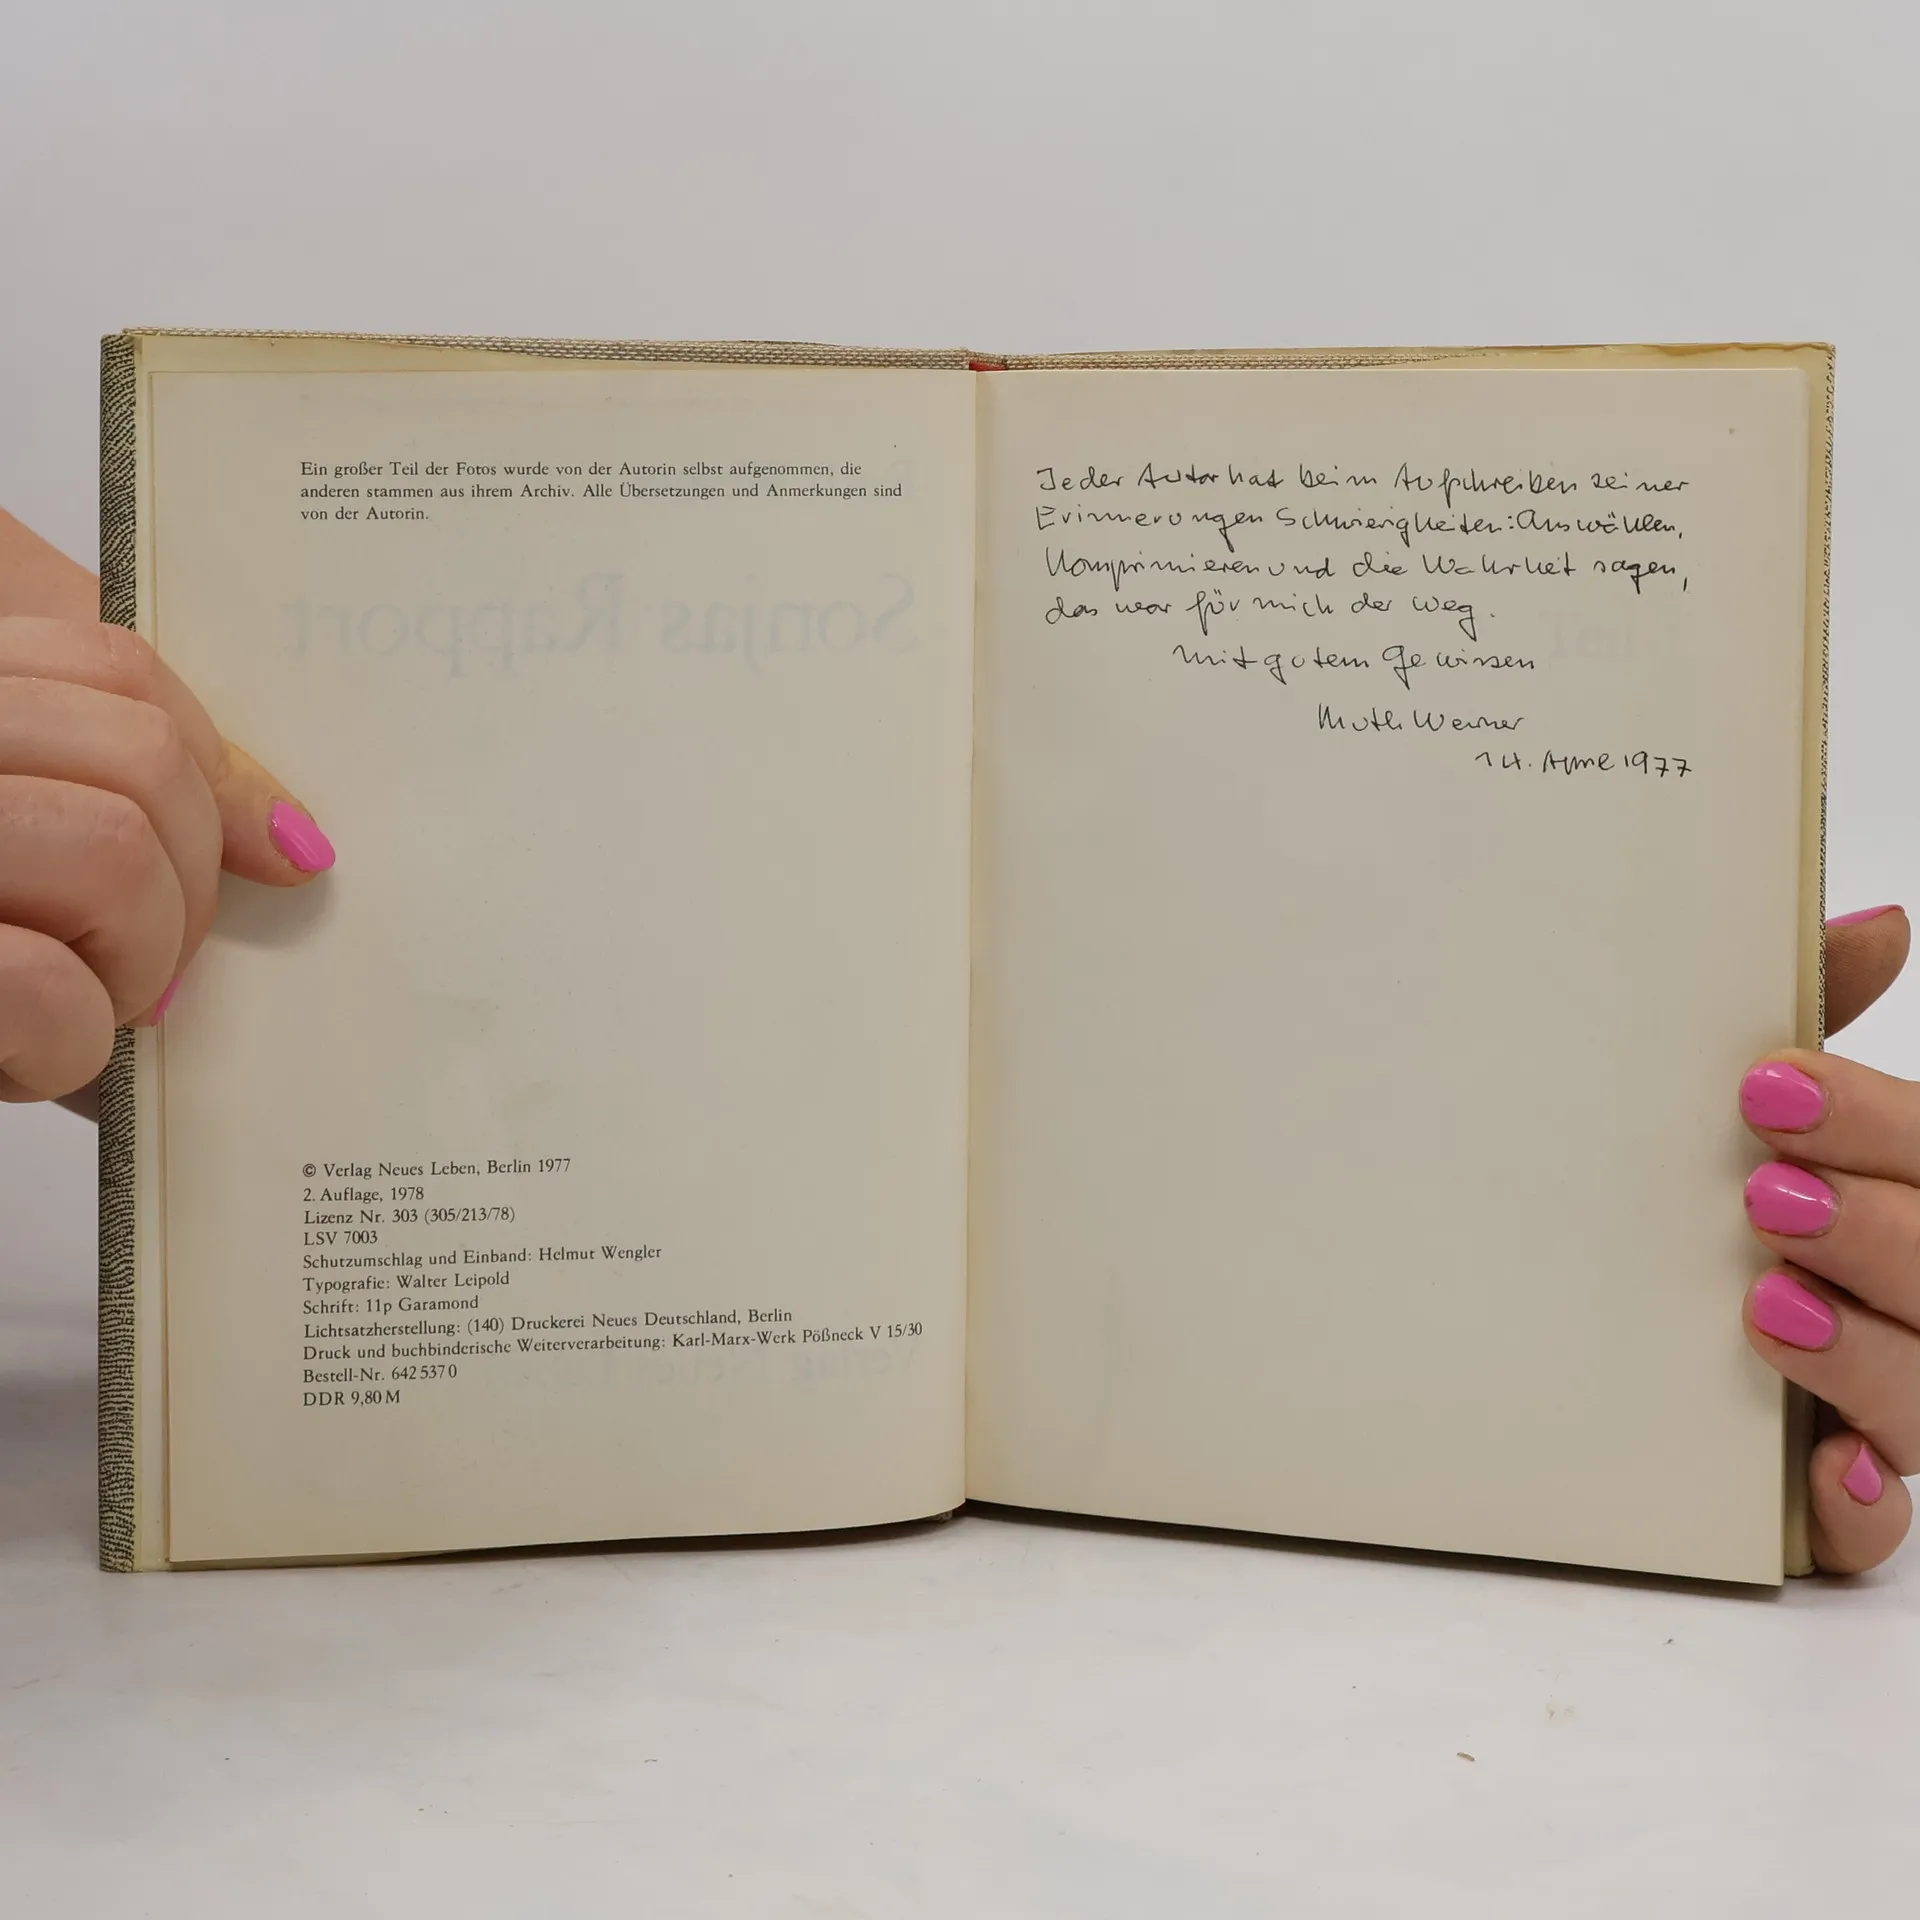 Ein großer Teil der Fotos wurde von der Autorin selbst aufgenommen, die
anderen stammen aus ihrem Archiv. Alle Übersetzungen und Anmerkungen sind
von der Autorin.
Sonjas Rapport
© Verlag Neues Leben, Berlin 1977
2. Auflage, 1978
Lizenz Nr. 303 (305/213/78)
LSV 7003
Schutzumschlag und Einband: Helmut Wengler
Typografie: Walter Leipold
Schrift: 11p Garamond
Lichtsatzherstellung: (140) Druckerei Neues Deutschland, Berlin
Druck und buchbinderische Weiterverarbeitung: Karl-Marx-Werk Pößneck V 15/30
Bestell-Nr. 642 537 0
DDR 9,80 M
Jeder Autor hat beim Aufschreiben seiner
Erinnerungen Schwierigkeiten: Auswählen,
Komprimieren und die Wahrheit sagen,
das war für mich der Weg.
Mit gutem Gewissen
Ruth Werner
14. April 1977